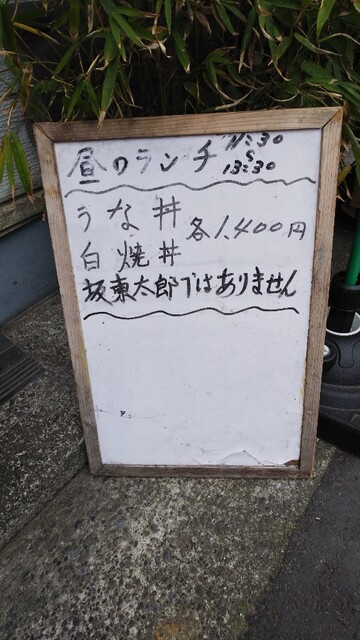 昼のランチ 11:30
〜
13:30
うな丼
白焼丼 各1,400円
坂東太郎ではありません